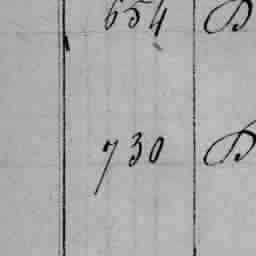 654 D
730 D